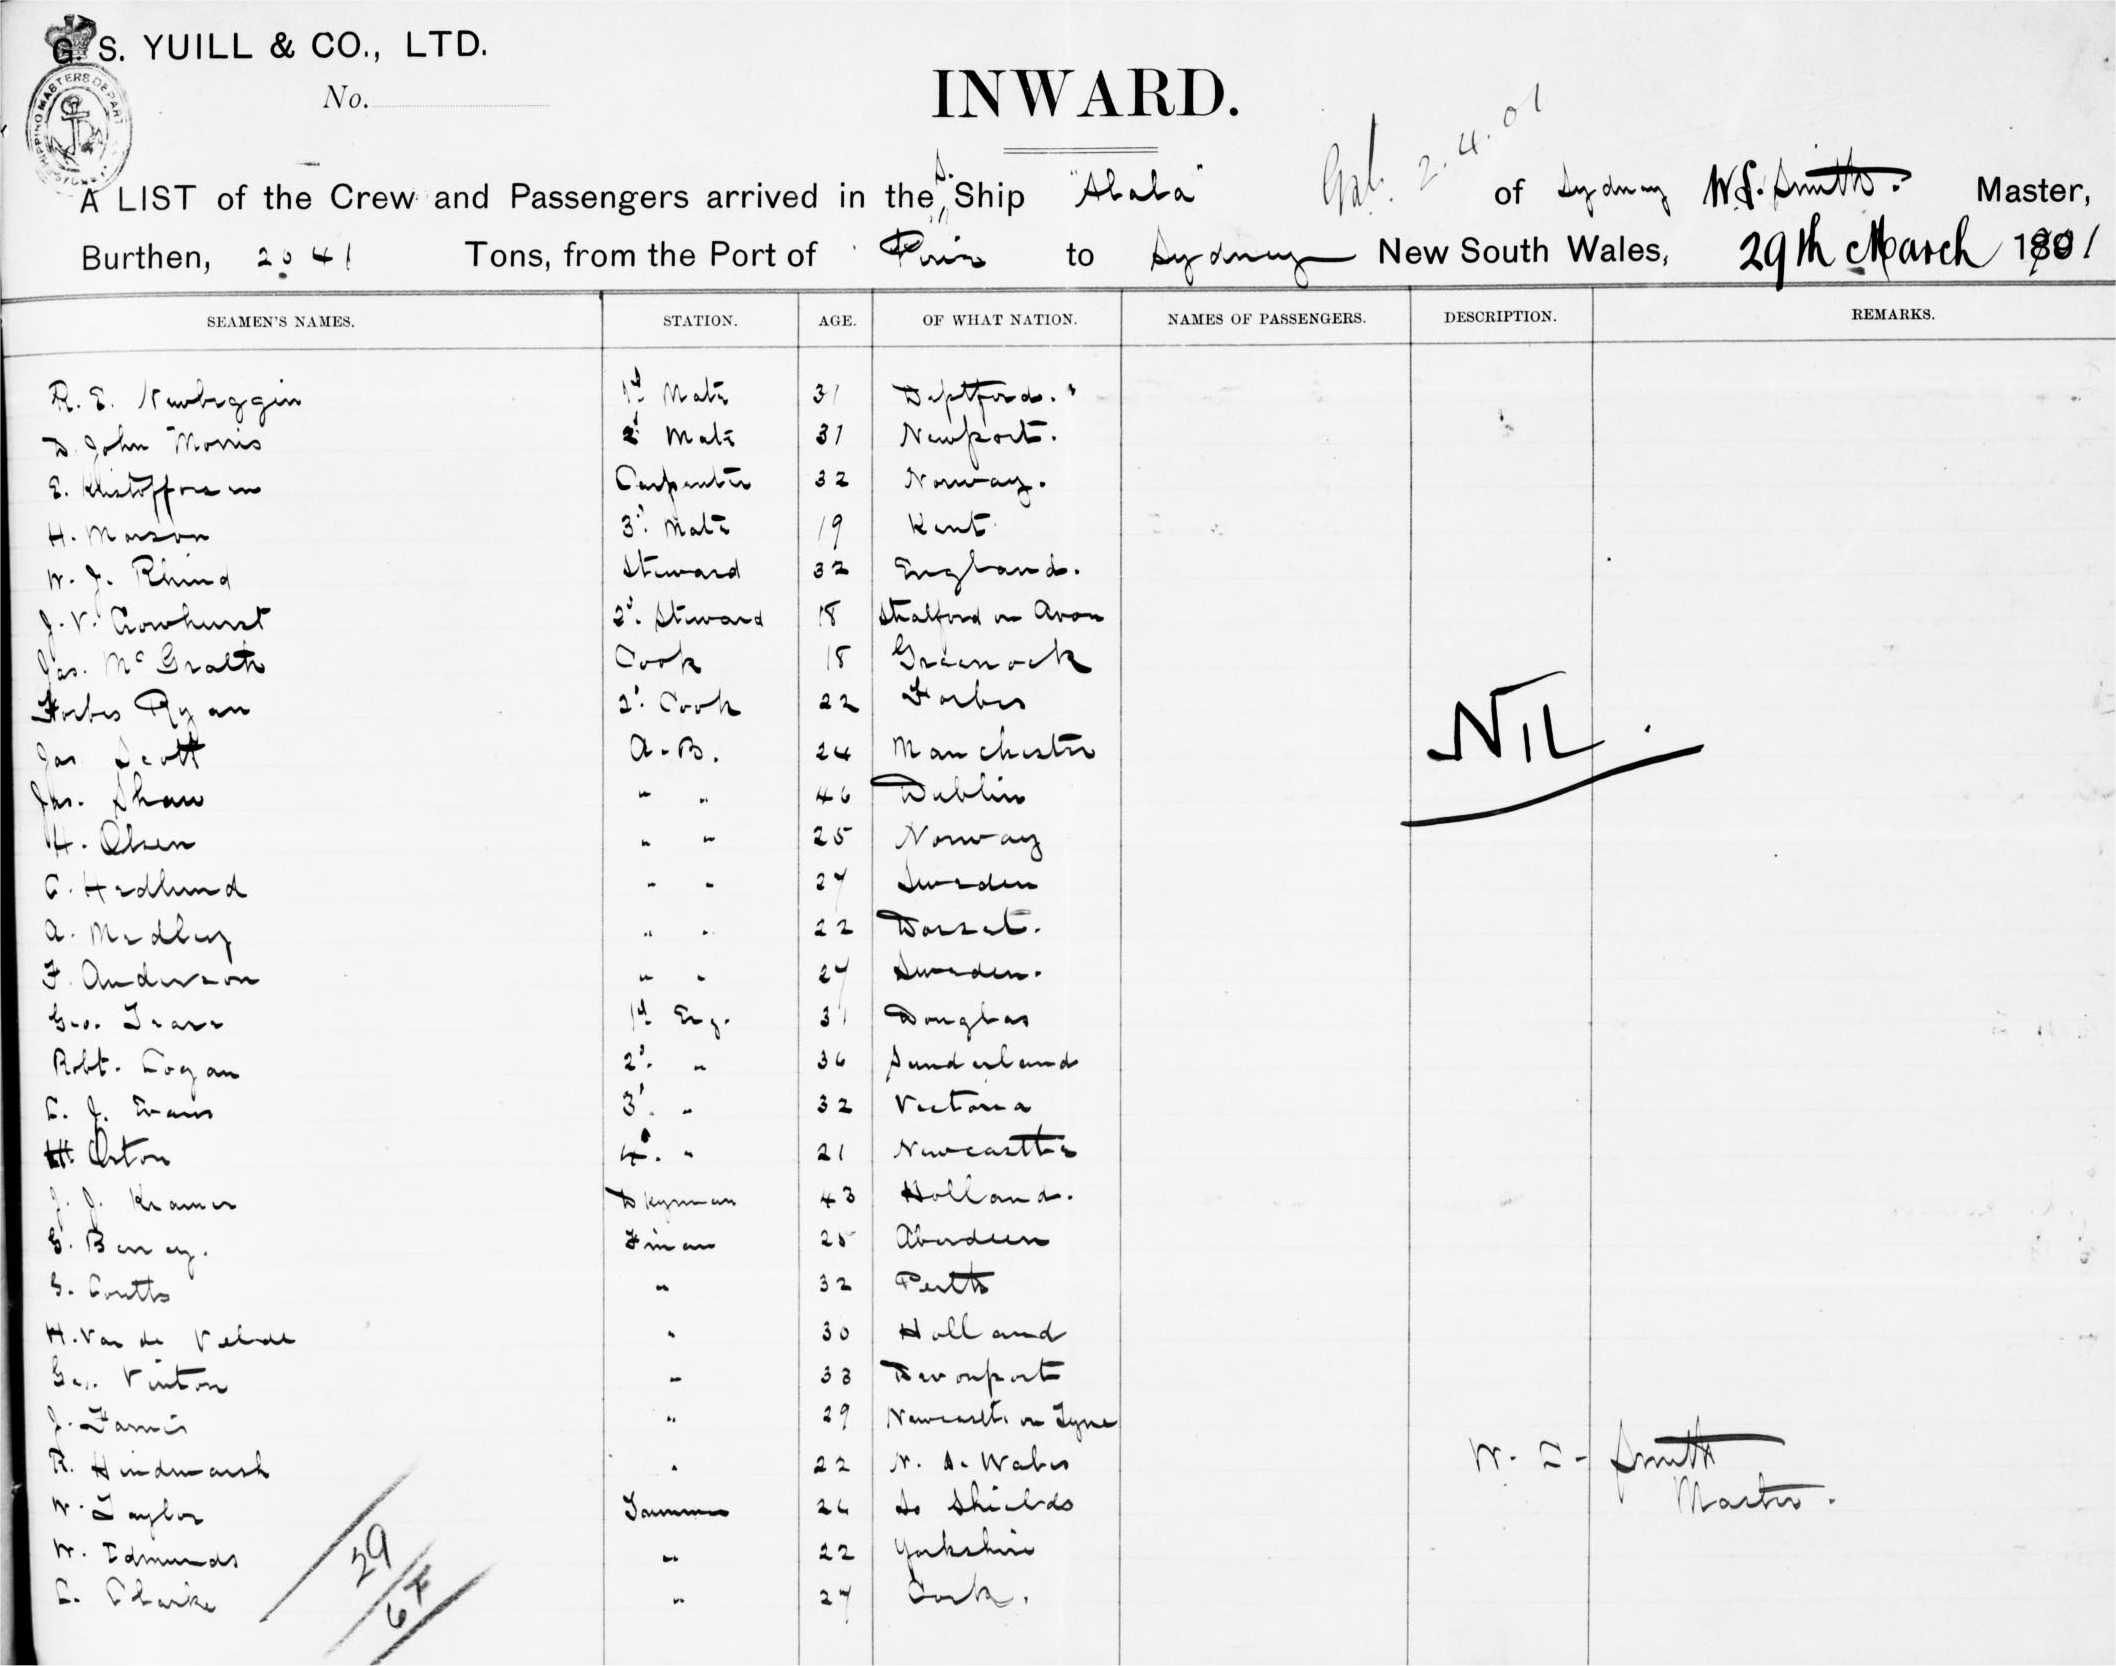 G. S. YUILL & CO., LTD.
No.
SHIPPING MASTERS DEPART
INWARD.
2.4.01
A LIST of the Crew and Passengers arrived in the S. Ship "Abala" of Sydney W. S. Smith. Master,
Burthen, 2041 Tons, from the Port of to Sydney New South Wales, 29th March 1901
SEAMEN'S NAMES. STATION. AGE. OF WHAT NATION. NAMES OF PASSENGERS. DESCRIPTION. REMARKS.
R. E. Newbiggin 1st Mate 31 Deptford.
D. John Morris 2d Mate 31 Newport.
E. Khistofforsen Carpenter 32 Norway.
H. Morson 3d Mate 19 Kent
W. J. Rhind Steward 32 England.
J. V. Crowhurst 2d. Steward 18 Stratford on Avon
Jas. McGrath Cook 18 Greenock
Forbes Ryan 2d. Cook 22 Forbes
Jas Scott A.B. 24 Manchester
Jas. Shaw " " 46 Dublin
H. Olsen " " 25 Norway
C. Hedlund " " 27 Sweden
A. Medley " " 22 Dorset.
F. Anderson " " 27 Sweden.
Geo. 1st Eng. 31 Douglas
Robt. Cogan 2d. " 36 Sunderland
C. J. Evans 3d. " 32 Victoria
H. Orton 4. " 21 Newcastle
J. J. Kramer Dkyman 43 Holland.
G. Fman 25 Aberdeen
G. Coutts " 32 Perth
H. Van de Velde " 30 Holland
Geo. Vinton " 33 Devonport
J. " 29 Newcastle on Tyne
R. Hindmarsh " 22 N. S. Wales
W. Taylor Trimmer 26 So Shields
W. Edmunds " 22 Yorkshire
C. Clarke " 27 Cork.
NIL.
W. S. Smith
Master.
29
67